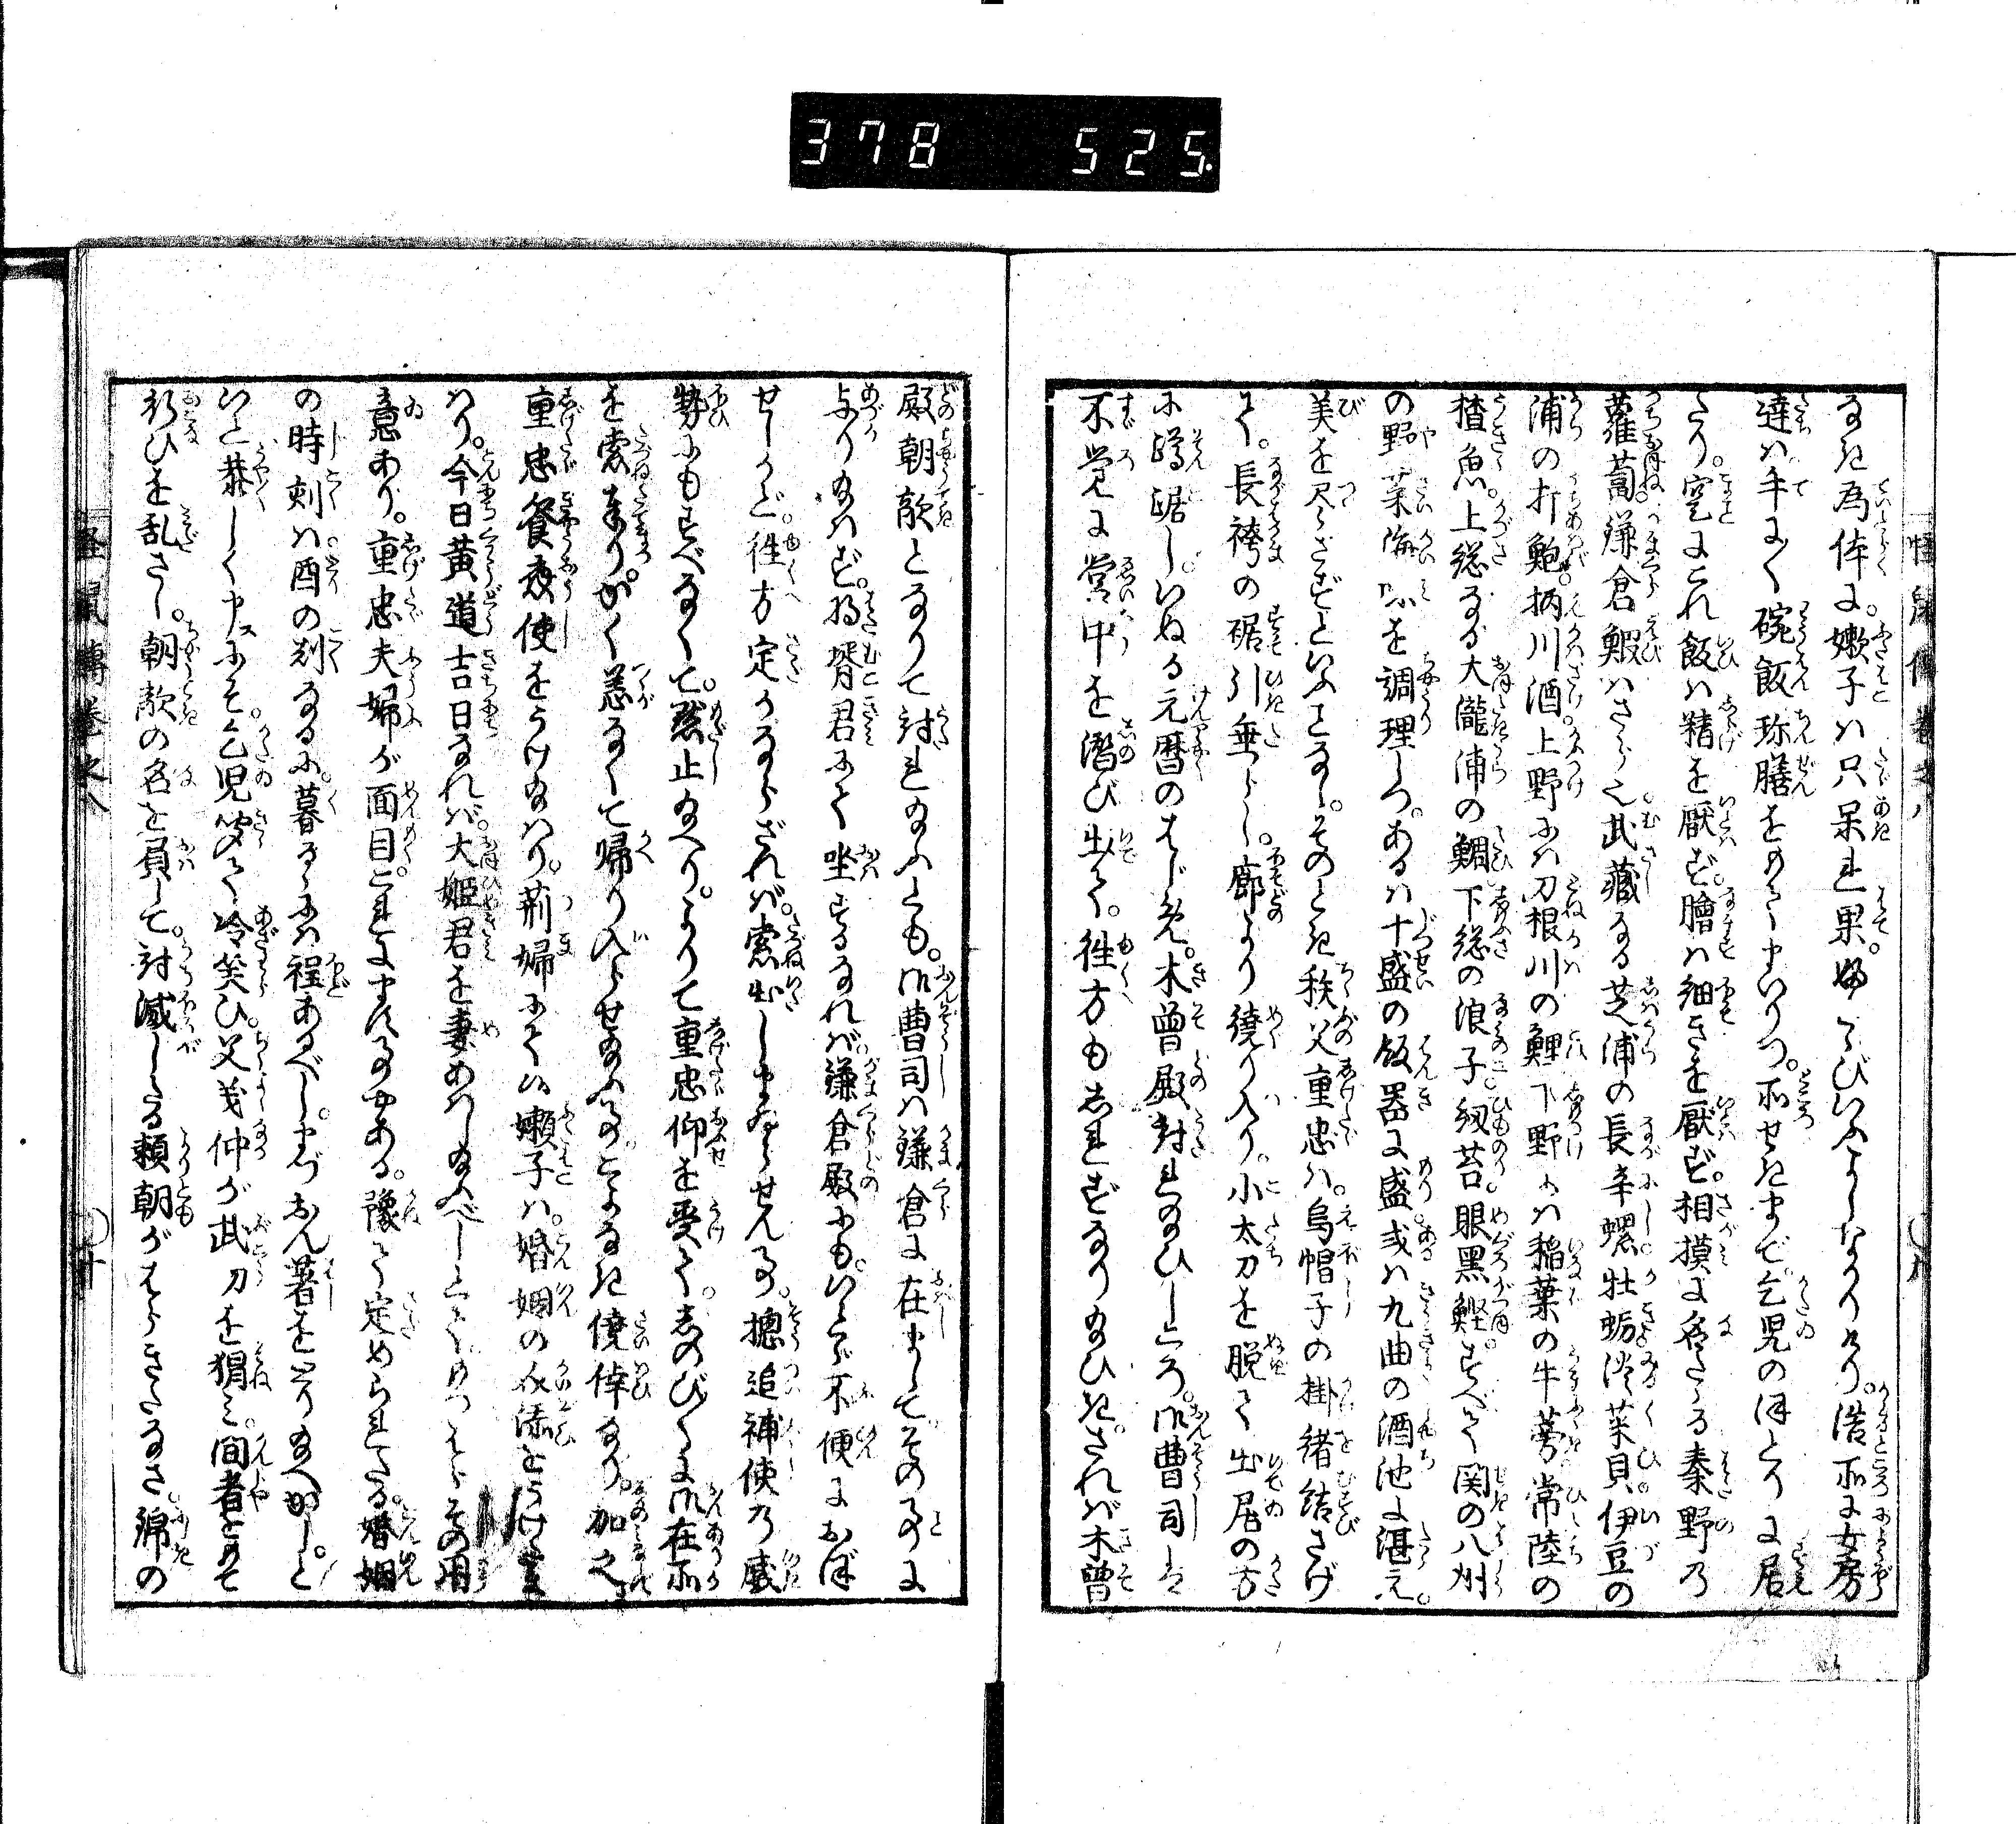 378 525.
怪鼠傳巻之八 ○九
なき為体に。嫩子ハ只呆れ果。
いふよしなかりけり。浩所に女房
達ハ手に〳〵碗飯珍膳をのせ
まうりつ。所せきまで。乞児のほとりに居
たり。寔にこれ飯ハ精を厭ず。膾ハ細きを厭ず。相摸に名たゝる秦野の
蘿蔔。鎌倉鰕ハさら也。武藏なる芝浦の長辛螺牡蛎
菜貝伊豆の
浦の打鮑。柄川酒。上野にハ刀根川の鯉下野にハ稲葉の牛蒡常陸の
楂魚。上総なる大瀧浦の鯛下総の浪子
苔。眼黒鰹。すべて関の八州
の野菜海
を調理しつ。あるハ十盛の飯器に盛。或ハ九曲の酒池に湛え
美を尽さずといふことなし。そのとき秩父重忠ハ。烏帽子の掛緒結さげ
て。長袴の裾引垂らし。廊より繞り入り。小太刀を脱て出居の方
に蹲踞し。いぬる元暦のはじめ。木曾殿討れ給ひしころ。御曹司は
不覚に営中を潜び出て。徃方も志れずなり給ひき。されバ木曾
殿朝敵となりて討れ給ふとも。御曹司ハ鎌倉に在まして。その事に
与り給ハず。
壻君にて坐するなれバ。鎌倉殿にも。いとゞ不便におぼ
せしかど。徃方定かならざれバ。索出しまゐらせん事。摠追補使の威
勢にもすべなくて。黙止給へり。よりて重忠仰を受て。志のび〳〵に御在所
を索奉り。かく恙なくて帰り入らせ給ふ事。こよなき僥倖なり。加之
重忠饗
使をうけ給ハり。荊婦にて候嫩子ハ。婚姻の
添をうけ
ハり。今日黄道吉日なれバ。大姫君を妻あはし給ふべしとて。かつ〴〵その用
意あり。重忠夫婦が面目。これにます事やある。豫て定められたる。婚姻
の時刻ハ。酉の刻なるに。暮るゝにハ程あるべし。まづおん箸をとり給へかし。と
いと恭しく申スにぞ。乞児
て冷笑ひ。父義仲が武刀を猜ミ。間者をもて
行ひを乱さし。朝敵の名を負して。討滅したる頼朝がはらきたなさ。綿の
怪鼠傳巻之八 ○十